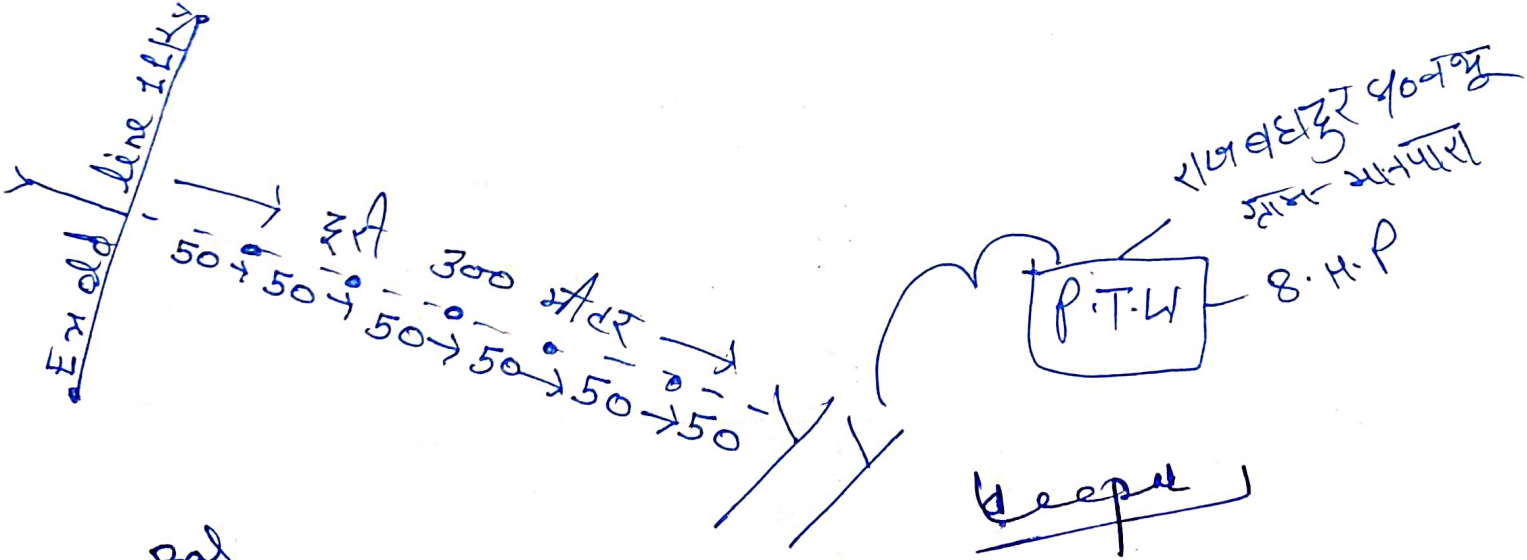 Ex old line 11KV
दूरी 300 मीटर
50 → 50 → 50 → 50 → 50 → 50
राजबहादुर S/O नभू
ग्राम- मानपारा
P.T.W
8.H.P